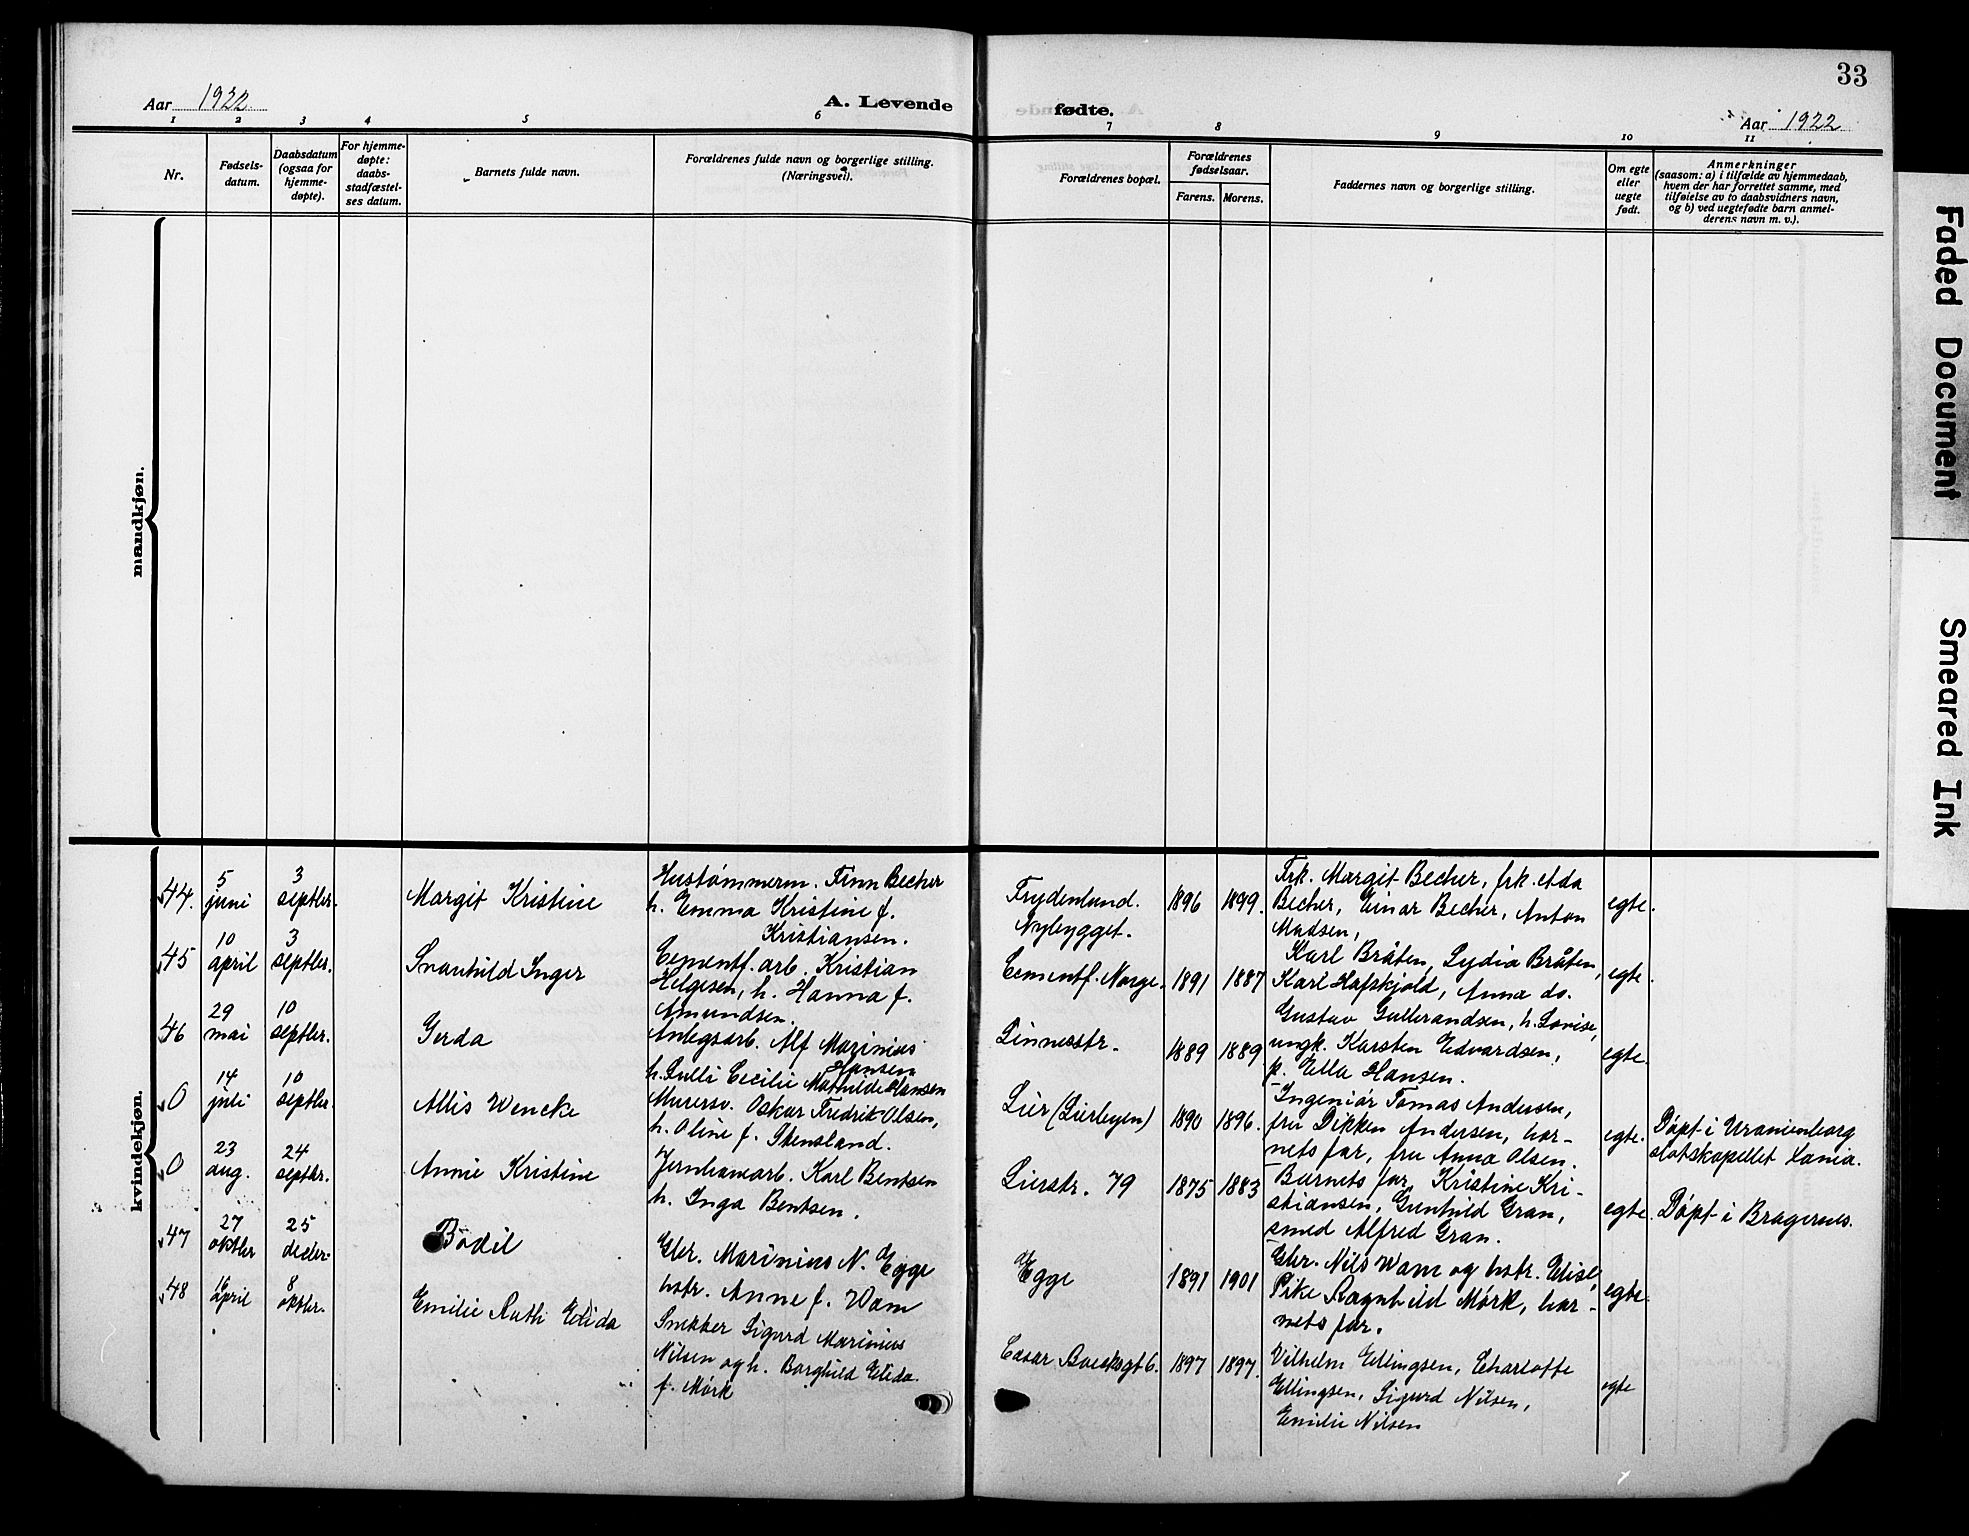 33
Aar 1922
A. Levende fødte.
Aar 1922
1 2 3 4 5 6 7 8 9 10 11
Nr.
Fødsels-
datum.
Daabsdatum
(ogsaa for
hjemme-
døpte).
For hjemme-
døpte:
daabs-
stadfæstel-
ses datum.
Barnets fulde navn.
Forældrenes fulde navn og borgerlige stilling.
(Næringsvei).
Forældrenes bopæl.
Forældrenes
fødselsaar.
Farens. Morens.
Faddernes navn og borgerlige stilling.
Om egte
eller
uegte
født.
Anmerkninger
(saasom: a) i tilfælde av hjemmedaab,
hvem der har forrettet samme, med
tilføielse av to daabsvidners navn,
og b) ved uegtefødte barn anmel-
derens navn m. v.).
mandkjøn.
kvindekjøn.
44.
5
juni
3
septbr.
Margit Kristine
Hustømmerm. Finn Becher
h. Emma Kristine f.
Kristiansen.
Frydenlund.
Nybygget.
1896
1899.
Frk. Margit Becher, frk. Alda
Becher, Einar Becher, Anton
Madsen,
egte.
45
10
april
3
septbr.
Snauhild Inger
Cementf. arb. Kristian
Helgesen, h. Hanna f.
Amundsen.
Cementf. Norge.
1891
1887
Karl Bråten, Lydia Bråten,
Karl Hafskjold, Anna do.
egte.
46
29
mai
10
septbr.
Gerda
Anlegsarb. Alf Marinius
Hansen
h. Lulli Cecilie Mathilde Hansen
Linnesstr.
1889
1889
Gustav Gulbrandsen, h. Lovise,
ungk. Karsten Edvardsen,
p. Ella Hansen.
egte.
0
14
juli
10
septbr.
Allis Wencke
Murersv. Oskar Fredrik Olsen,
h. Oline f. Stensland.
Lier (Lierbyen)
1890
1896.
Ingeniør Tomas Andersen,
fru Dikken Andersen, bar-
nets far, fru Anna Olsen.
egte.
Døpt i Uranienborg
slotskapellet Xania.
0
23
aug.
24
septbr.
Annie Kristine
Jernbanearb. Karl Bentsen
h. Inga Bentsen.
Lierstr. 79
1875
1883
Barnets far, Kristine Kri-
stiansen, Gunhild Gran,
smed Alfred Gran.
egte.
Døpt i Bragernes.
47
27
oktbr
25
decbr.
Bodil
Gbr. Marinius N. Egge
hstr. Anne f. Wam
Egge
1891
1901
Gbr. Nils Wam og hstr. Elise,
Pike Ragnhild Mørk, bar-
nets far.
egte.
48
16
april
8
oktbr.
Emilie Ruth Elida
Snekker Sigurd Marinius
Nilsen og h. Borghild Elida
f. Mørk
1897
1897.
Vilhelm Ellingsen, Charlotte
Ellingsen, Sigurd Nilsen,
Emilie Nilsen
egte
Faded Document
Smeared Ink